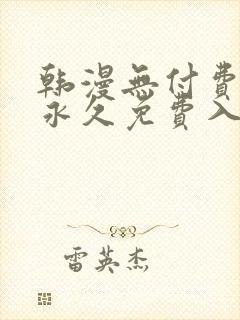 韩漫無付費
永久免費入
雷英杰